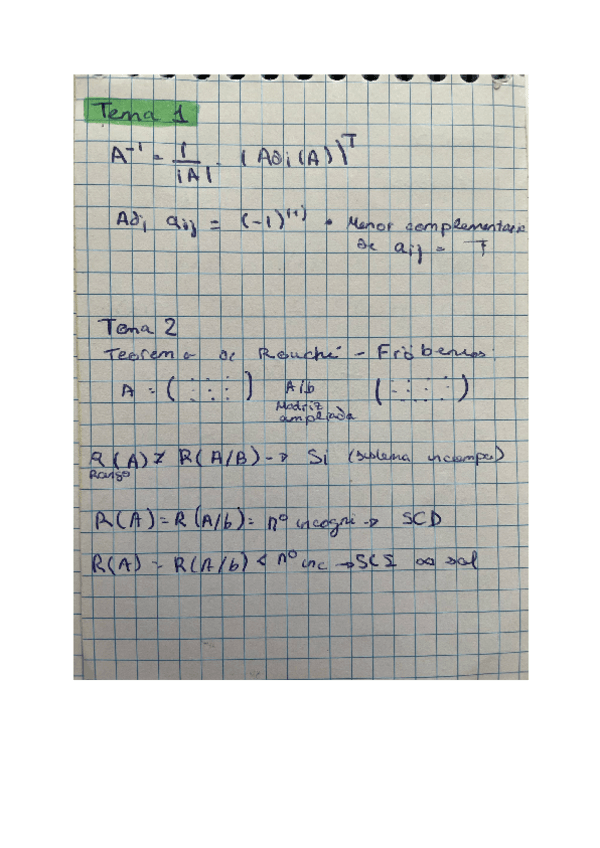 Tema 1
A⁻¹ = 1/|A| · (Adj(A))ᵀ
Adj aij = (-1)ⁱ⁺ʲ • Menor complementario
de aij =
Tema 2
Teorema de Rouché - Fröbenius:
A = ( ) A/b ( )
Matriz
ampliada
R(A) ≠ R(A/B) -> Si (sistema incomp)
Rango
R(A) = R(A/b) = nº incogni -> SCD
R(A) = R(A/b) < nº inc -> SCI ∞ sol